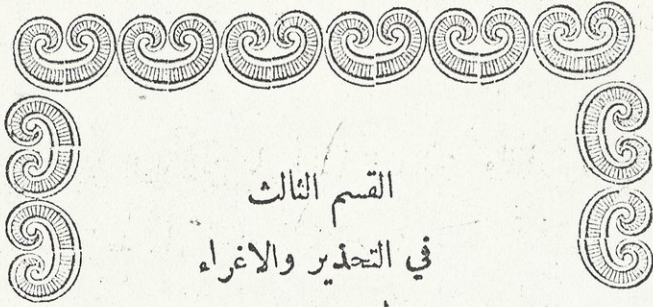 القسم الثالث
في التحذير والاغراء